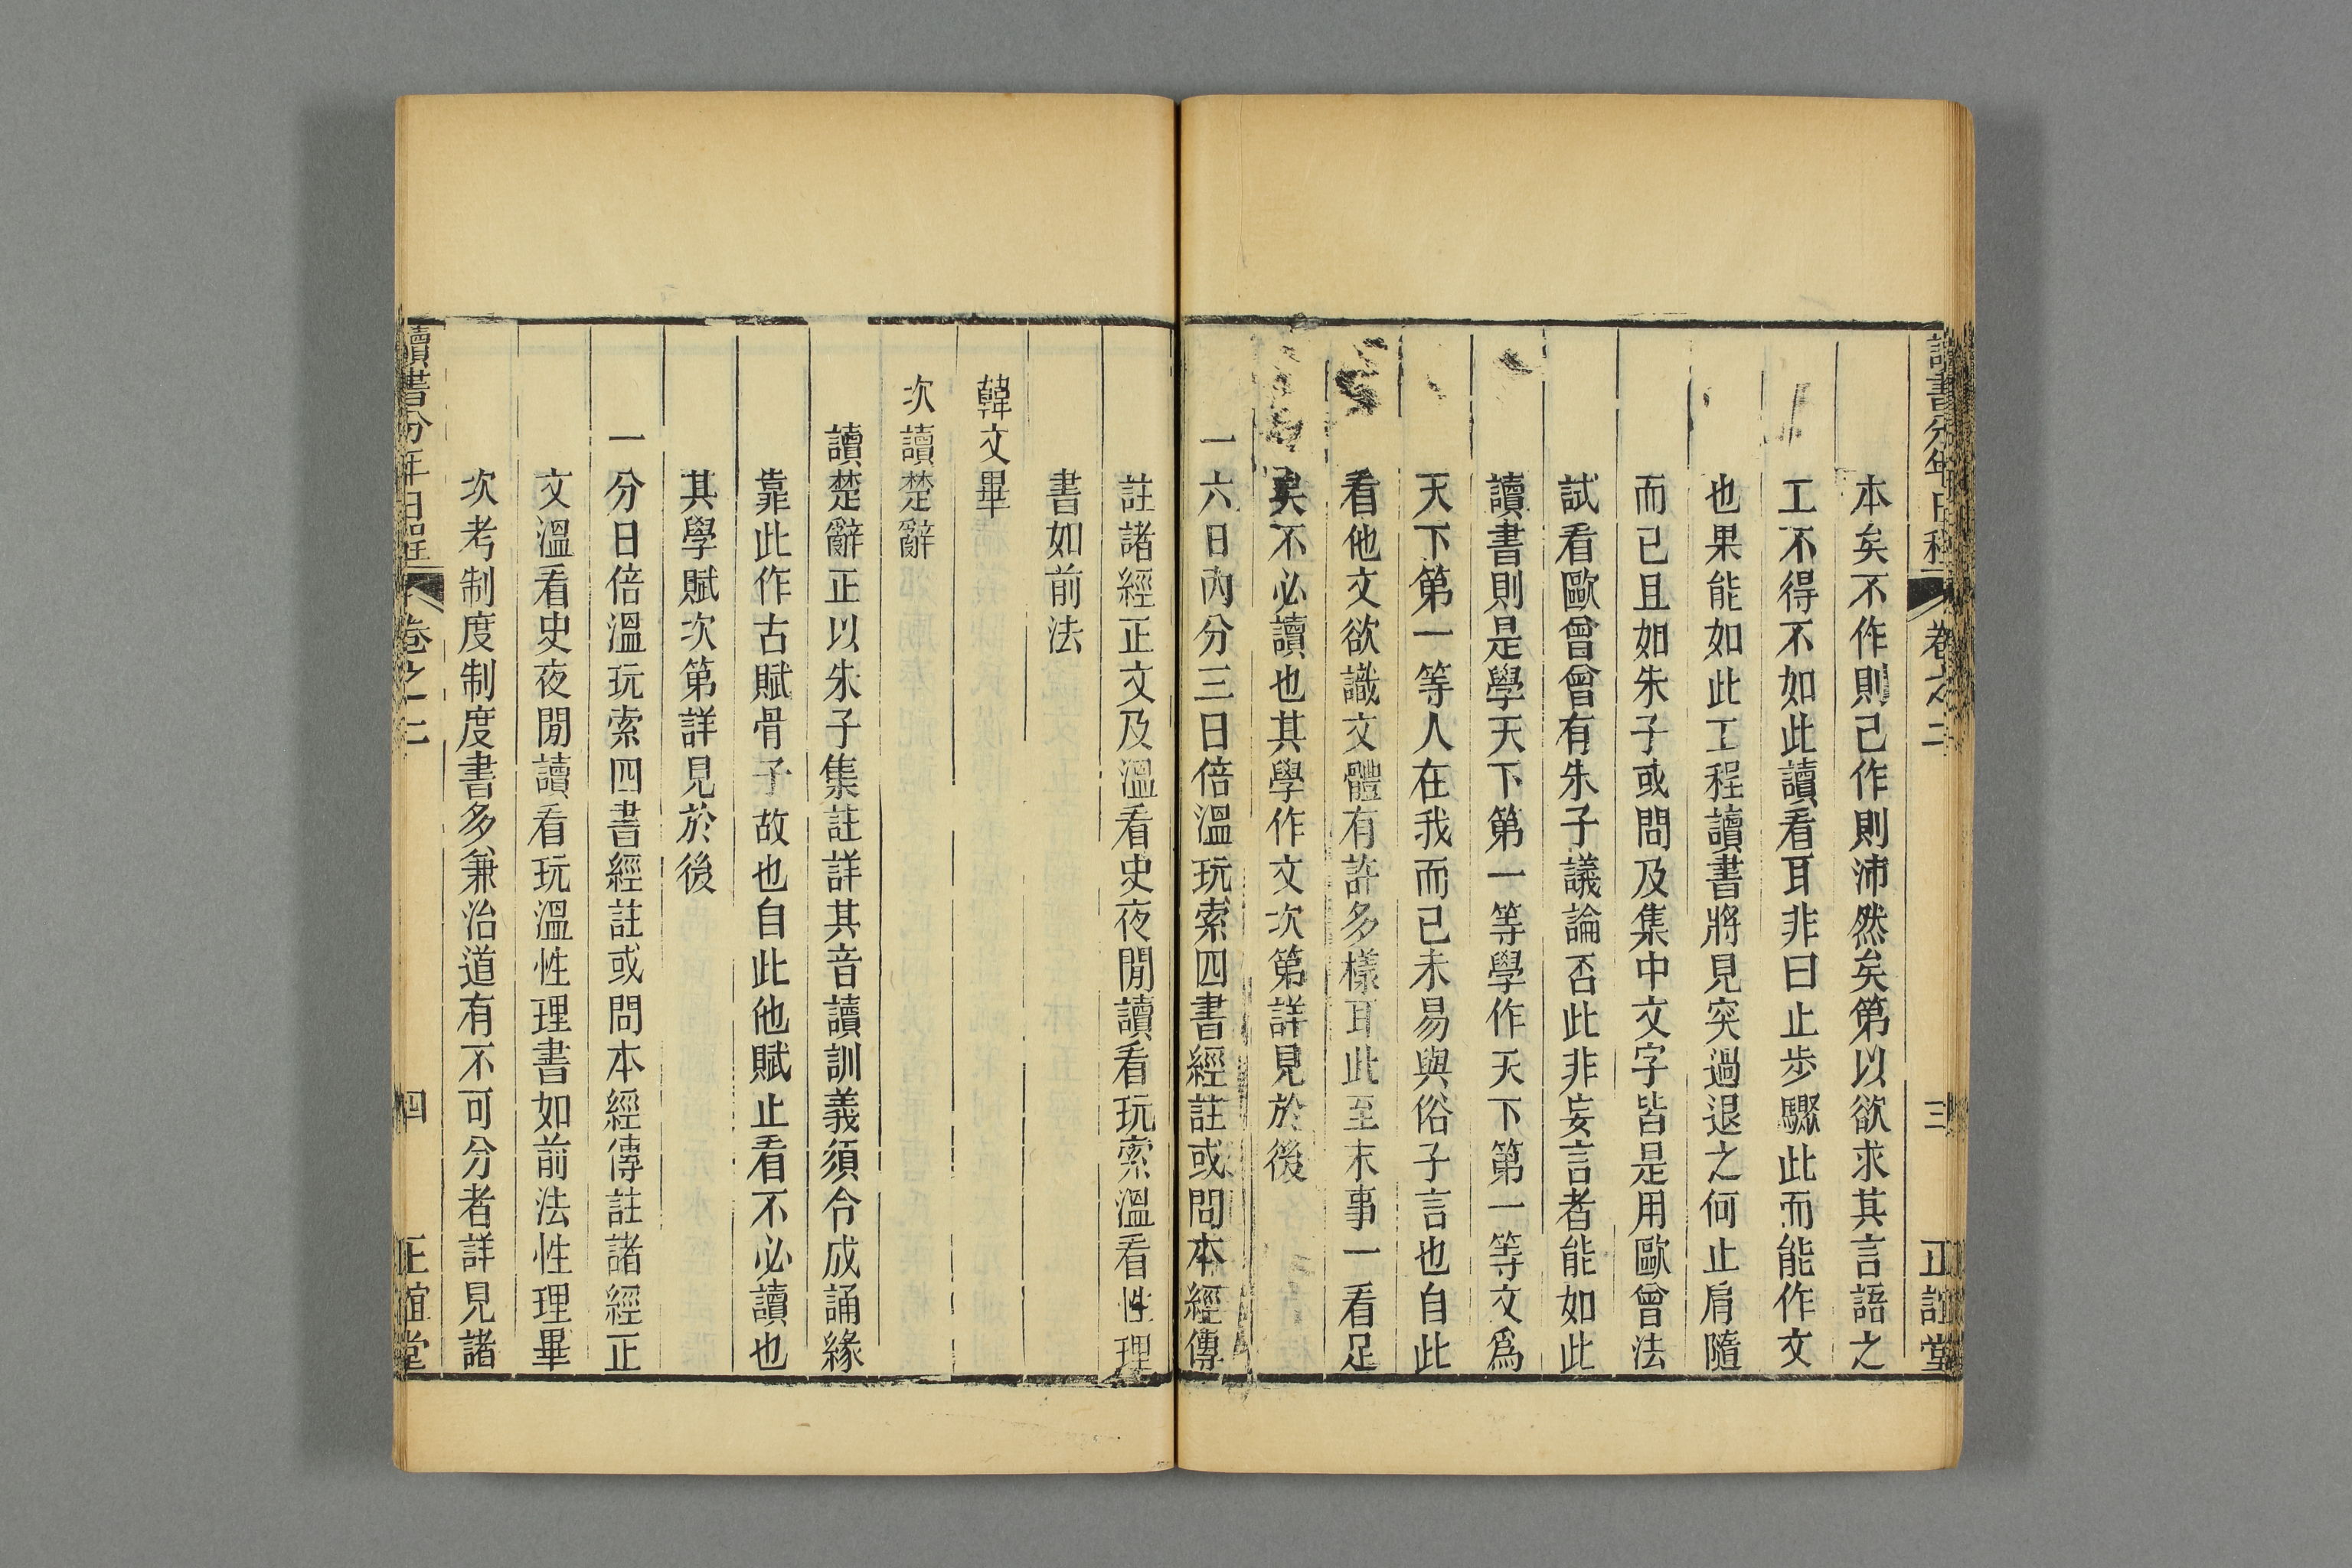 讀書分年日程 卷之二 三 正誼堂
本矣不作則已作則沛然矣第以欲求其言語之
工不得不如此讀看耳非曰止步驟此而能作文
也果能如此工程讀書將見突過退之何止肩隨
而已且如朱子或問及集中文字皆是用歐曾法
試看歐曾曾有朱子議論否此非妄言者能如此
讀書則是學天下第一等學作天下第一等文爲
天下第一等人在我而已未易與俗子言也自此
看他文欲識文體有許多樣耳此至末事一看足
矣不必讀也其學作文次第詳見於後
一六日內分三日倍溫玩索四書經註或問本經傳
註諸經正文及溫看史夜閒讀看玩索溫看性理
書如前法
韓文畢
次讀楚辭
讀楚辭正以朱子集註詳其音讀訓義須令成誦緣
靠此作古賦骨子故也自此他賦止看不必讀也
其學賦次第詳見於後
一分日倍溫玩索四書經註或問本經傳註諸經正
文溫看史夜閒讀看玩溫性理書如前法性理畢
次考制度制度書多兼治道有不可分者詳見諸
讀書分年日程 卷之二 四 正誼堂